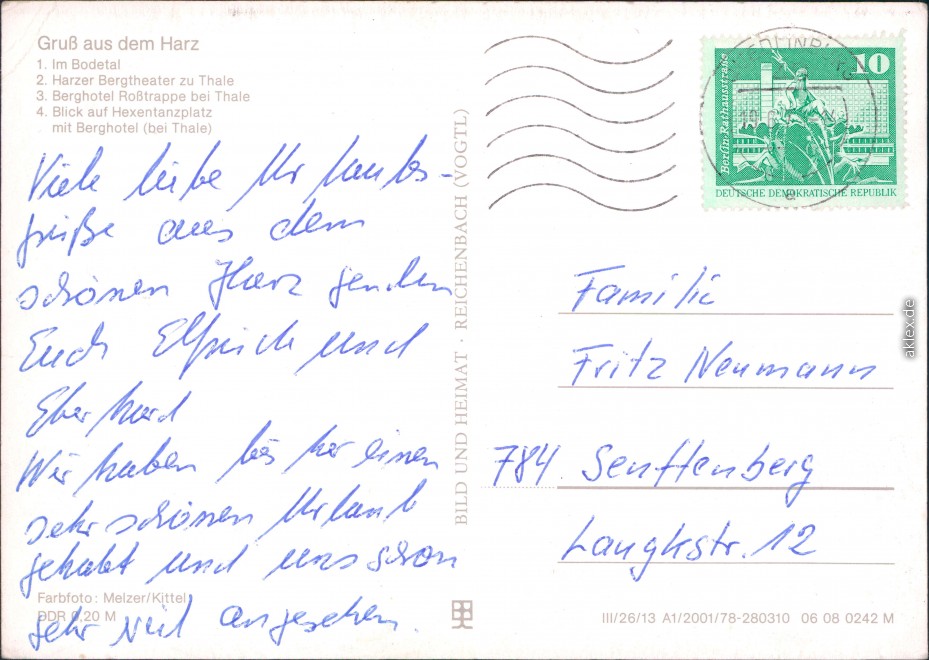 Gruß aus dem Harz
1. Im Bodetal
2. Harzer Bergtheater zu Thale
3. Berghotel Roßtrappe bei Thale
4. Blick auf Hexentanzplatz
mit Berghotel (bei Thale)
Viele liebe Urlaubs-
grüße aus dem
schönen Harz senden
Euch Elfriede und
Eberhard
Wir haben bis her einen
sehr schönen Urlaub
gehabt und uns schon
sehr viel angesehen.
Farbfoto: Melzer/Kittel
DDR 0,20 M
BILD UND HEIMAT · REICHENBACH (VOGTL)
10
Berlin, Rathausstraße
DEUTSCHE DEMOKRATISCHE REPUBLIK
Familie
Fritz Neumann
784 Senftenberg
Langkstr. 12
III/26/13 A1/2001/78-280310 06 08 0242 M
aklex.de